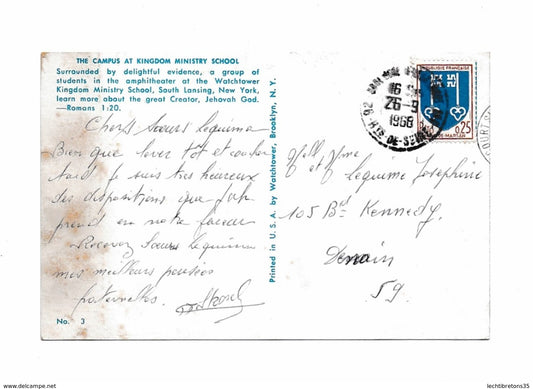 THE CAMPUS AT KINGDOM MINISTRY SCHOOL
Surrounded by delightful evidence, a group of
students in the amphitheater at the Watchtower
Kingdom Ministry School, South Lansing, New York,
learn more about the great Creator, Jehovah God.
—Romans 1:20.
Chers Sœurs Lequime
Bien que lever tôt et coucher
tard je suis très heureux
des dispositions que Jéh
prend en notre faveur
Recevez Sœurs Lequime
mes meilleurs pensées
fraternelles.
No. 3
Printed in U. S. A. by Watchtower, Brooklyn, N. Y.
16 H
26-9
1968
92 HTS DE SEINE
REPUBLIQUE FRANÇAISE
0,25
MONT-DE-MARSAN
Melle Mme
et Lequime Josephine
105 Bd Kennedy.
Denain
59.
lechtibretons35